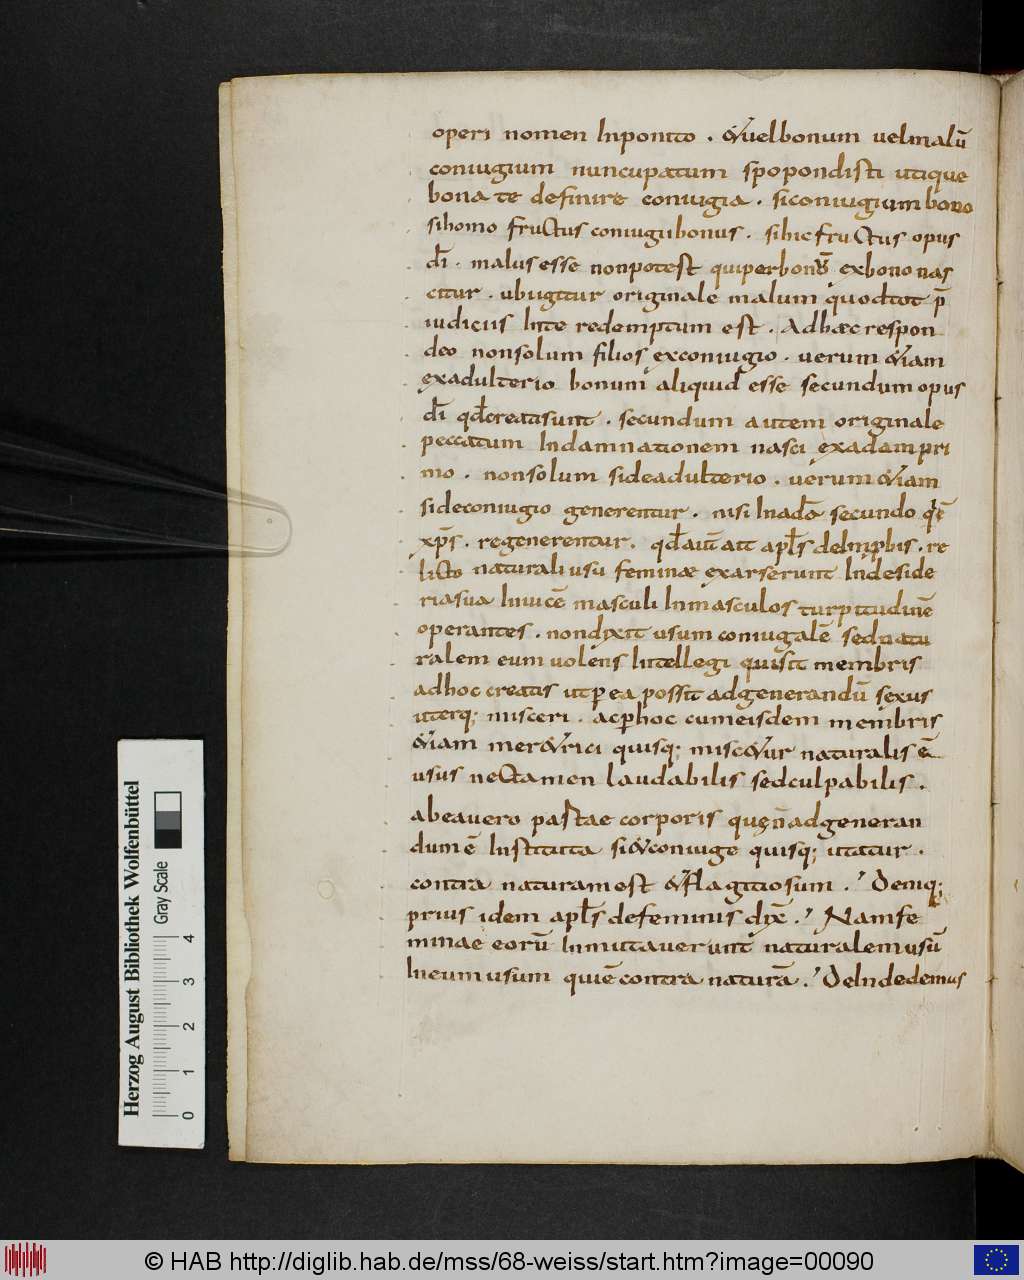 operi nomen Inponito . &uel bonum uel malū
coniugium nuncupatum spopondisti utique
bona te definire coniugia . si coniugium bono
si homo fructus coniugii bonus . si hic fructus opus
d̄i . malus esse non potest qui per bon ex bono nas
citur . ubi igitur originale malum quod tot p̄
iudiciis Inte redemptum est . Ad haec respon
deo non solum filios ex coniugio . uerum &iam
ex adulterio bonum aliquid esse secundum opus
d̄i qđ creati sunt . secundum autem originale
peccatum In damnationem nasci ex adam pri
mo . non solum si de adulterio . uerum &iam
si de coniugio generentur . nisi In adā secundo q ē
xp̄s . regenerentur . qđ aut̄ ait apl̄s de Inpbis . re
licto naturali usu feminae exarserunt In deside
ria sua Inuicē masculi In masculos turpitudinē
operantes . non dixit usum coniugalē sed natu
ralem eum uolens Intellegi qui sit membris
ad hoc creatis ut per ea possit ad generandū sexus
uterq; misceri . ac per hoc cum eisdem membris
&iam mer&rici quisq; misc&ur naturalis ē
usus nec tamen laudabilis sed culpabilis .
ab ea uero parte corporis quę ñ ad generan
dum ē Instituta si & coniuge quisq; utatur .
contra naturam est & flagitiosum . Deniq;
prius idem apl̄s de feminis dix̄ . Nam fe
minae eorū Inmutauerunt naturalem usū
In eum usum qui ē contra naturā . DeInde de mus
Herzog August Bibliothek Wolfenbüttel
Gray Scale
0 1 2 3 4
© HAB http://diglib.hab.de/mss/68-weiss/start.htm?image=00090